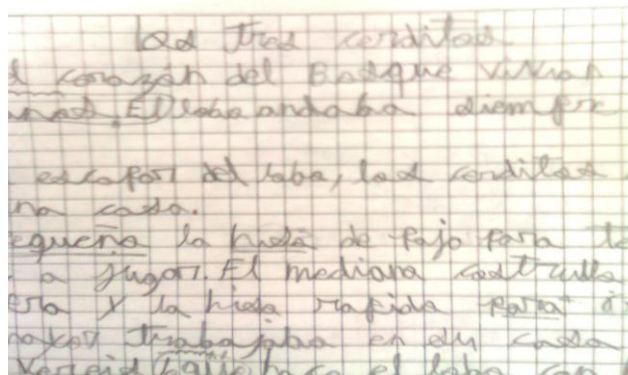 Los tres cerditos
corazón del Bosque vivian
El lobo andaba siempre
escapar del lobo, los cerditos
na casa.
equeño la hiso de paja para
a jugar. El mediano costrulle
era y la hisa rapida para
mayor trabajaba en su casa
hace el lobo con